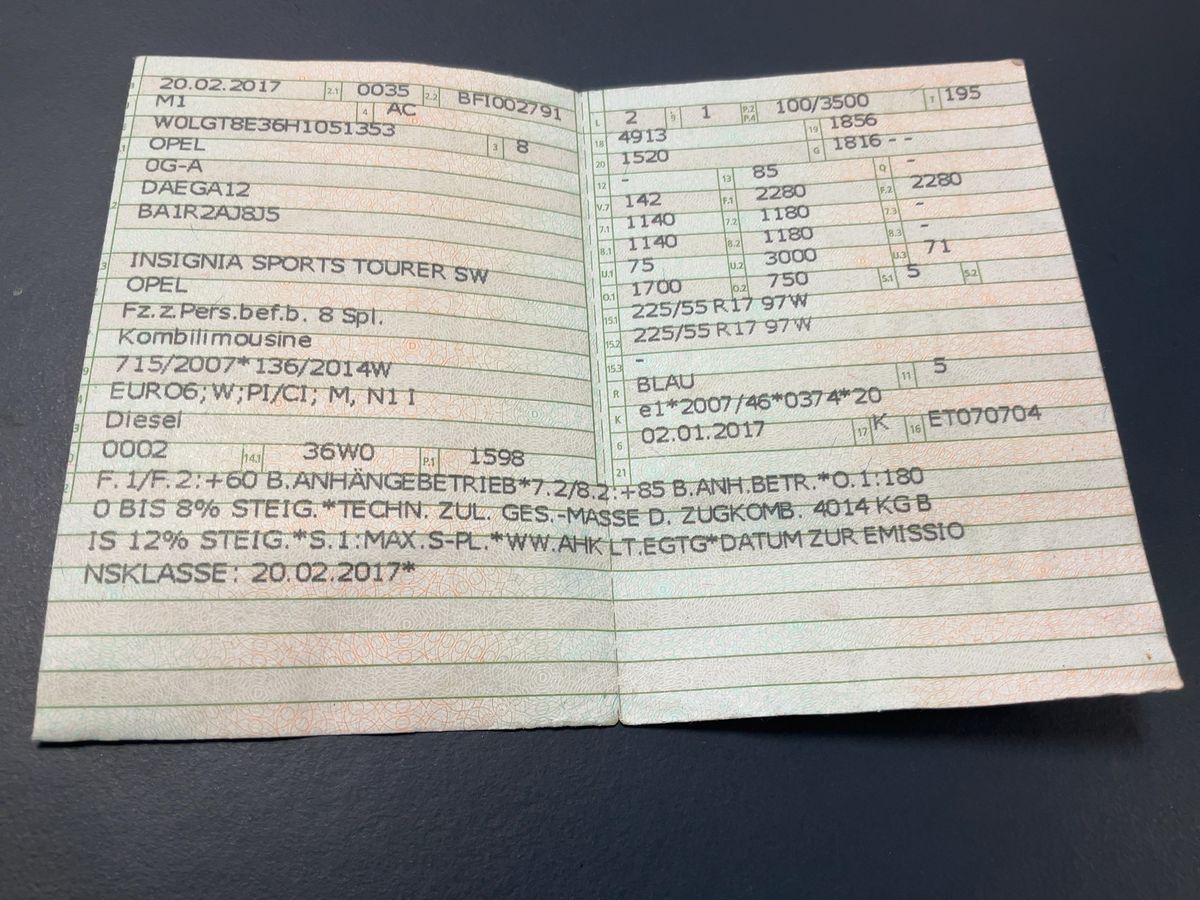 20.02.2017 2.1 0035 2.2 BFI002791
M1 4 AC
W0LGT8E36H1051353
OPEL 3 8
0G-A
DAEGA12
BA1R2AJ8J5
INSIGNIA SPORTS TOURER SW
OPEL
Fz.z.Pers.bef.b. 8 Spl.
Kombilimousine
715/2007*136/2014W
EURO6;W;PI/CI; M, N1 I
Diesel
0002 14.1 36W0 P.1 1598
L 2 9 1 P.2 P.4 100/3500 T 195
18 4913 19 1856
20 1520 G 1816 - -
12 - 13 85 Q -
V.7 142 F.1 2280 F.2 2280
7.1 1140 7.2 1180 7.3 -
8.1 1140 8.2 1180 8.3 -
U.1 75 U.2 3000 U.3 71
O.1 1700 O.2 750 S.1 5 S.2
15.1 225/55 R17 97W
15.2 225/55 R17 97W
15.3 -
R BLAU 11 5
K e1*2007/46*0374*20
6 02.01.2017 17 K 16 ET070704
21
F.1/F.2:+60 B.ANHÄNGEBETRIEB*7.2/8.2:+85 B.ANH.BETR.*O.1:180
0 BIS 8% STEIG.*TECHN. ZUL. GES.-MASSE D. ZUGKOMB. 4014 KG B
IS 12% STEIG.*S.1:MAX.S-PL.*WW.AHK LT.EGTG*DATUM ZUR EMISSIO
NSKLASSE: 20.02.2017*